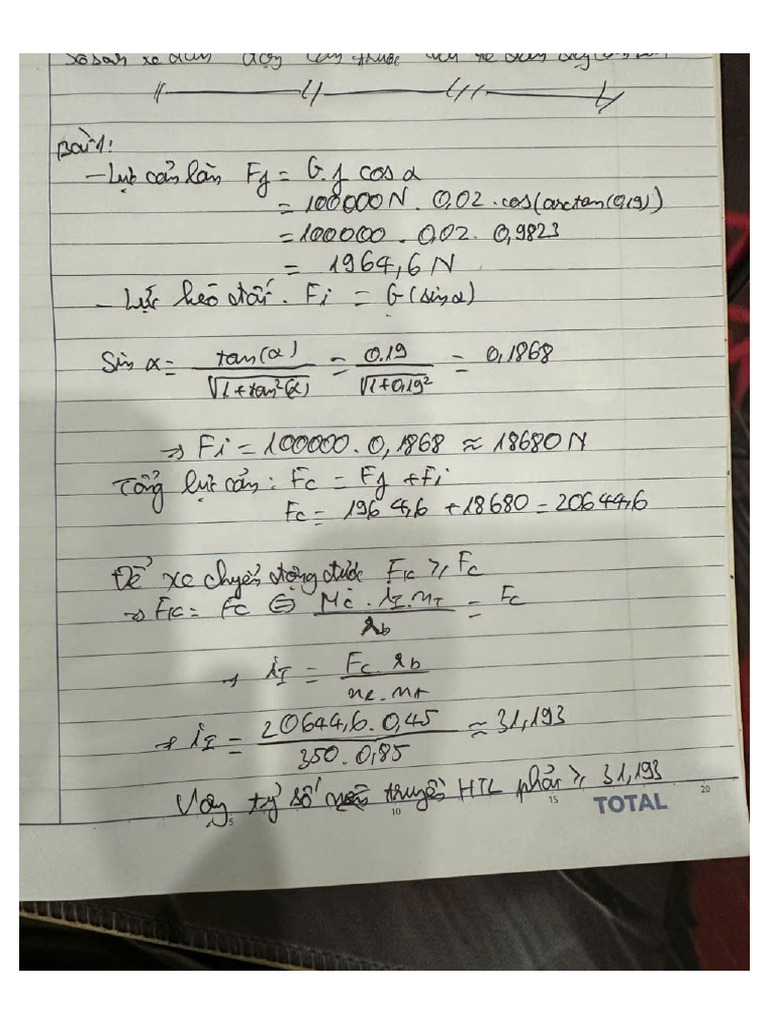 so sánh xe dẫn động cầu trước với xe dẫn động cầu sau
Bài 1:
- Lực cản lăn Ff = G.f cos α
= 100000N . 0,02 . cos(arctan(0,19))
= 100000 . 0,02 . 0,9823
= 1964,6 N
- Lực kéo dốc. Fi = G(sin α)
Sin α = tan(α) / √(1+tan²(α)) = 0.19 / √(1+0,19²) = 0,1868
→ Fi = 100000. 0,1868 ≈ 18680 N
Tổng lực cản: Fc = Ff + Fi
Fc = 1964,6 + 18680 = 20644,6
Để xe chuyển động được Fk ≥ Fc
→ Fk = Fc ⇔ Me . iI . nT / rb = Fc
→ iI = Fc . rb / ne . nt
→ iI = 20644,6. 0,45 / 350. 0,85 ≈ 31,193
Vậy tỷ số truyền HTL phải ≥ 31,193
5 10 15 TOTAL 20